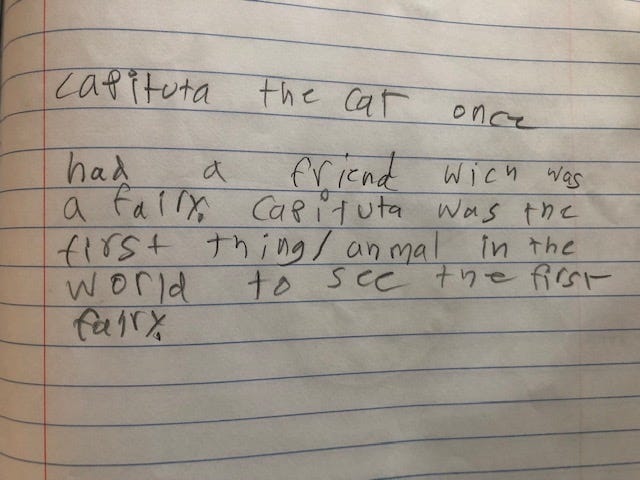 Capituta the cat once
had a friend wich was
a fairy. Capituta was the
first thing/anmal in the
world to see the first
fairy.